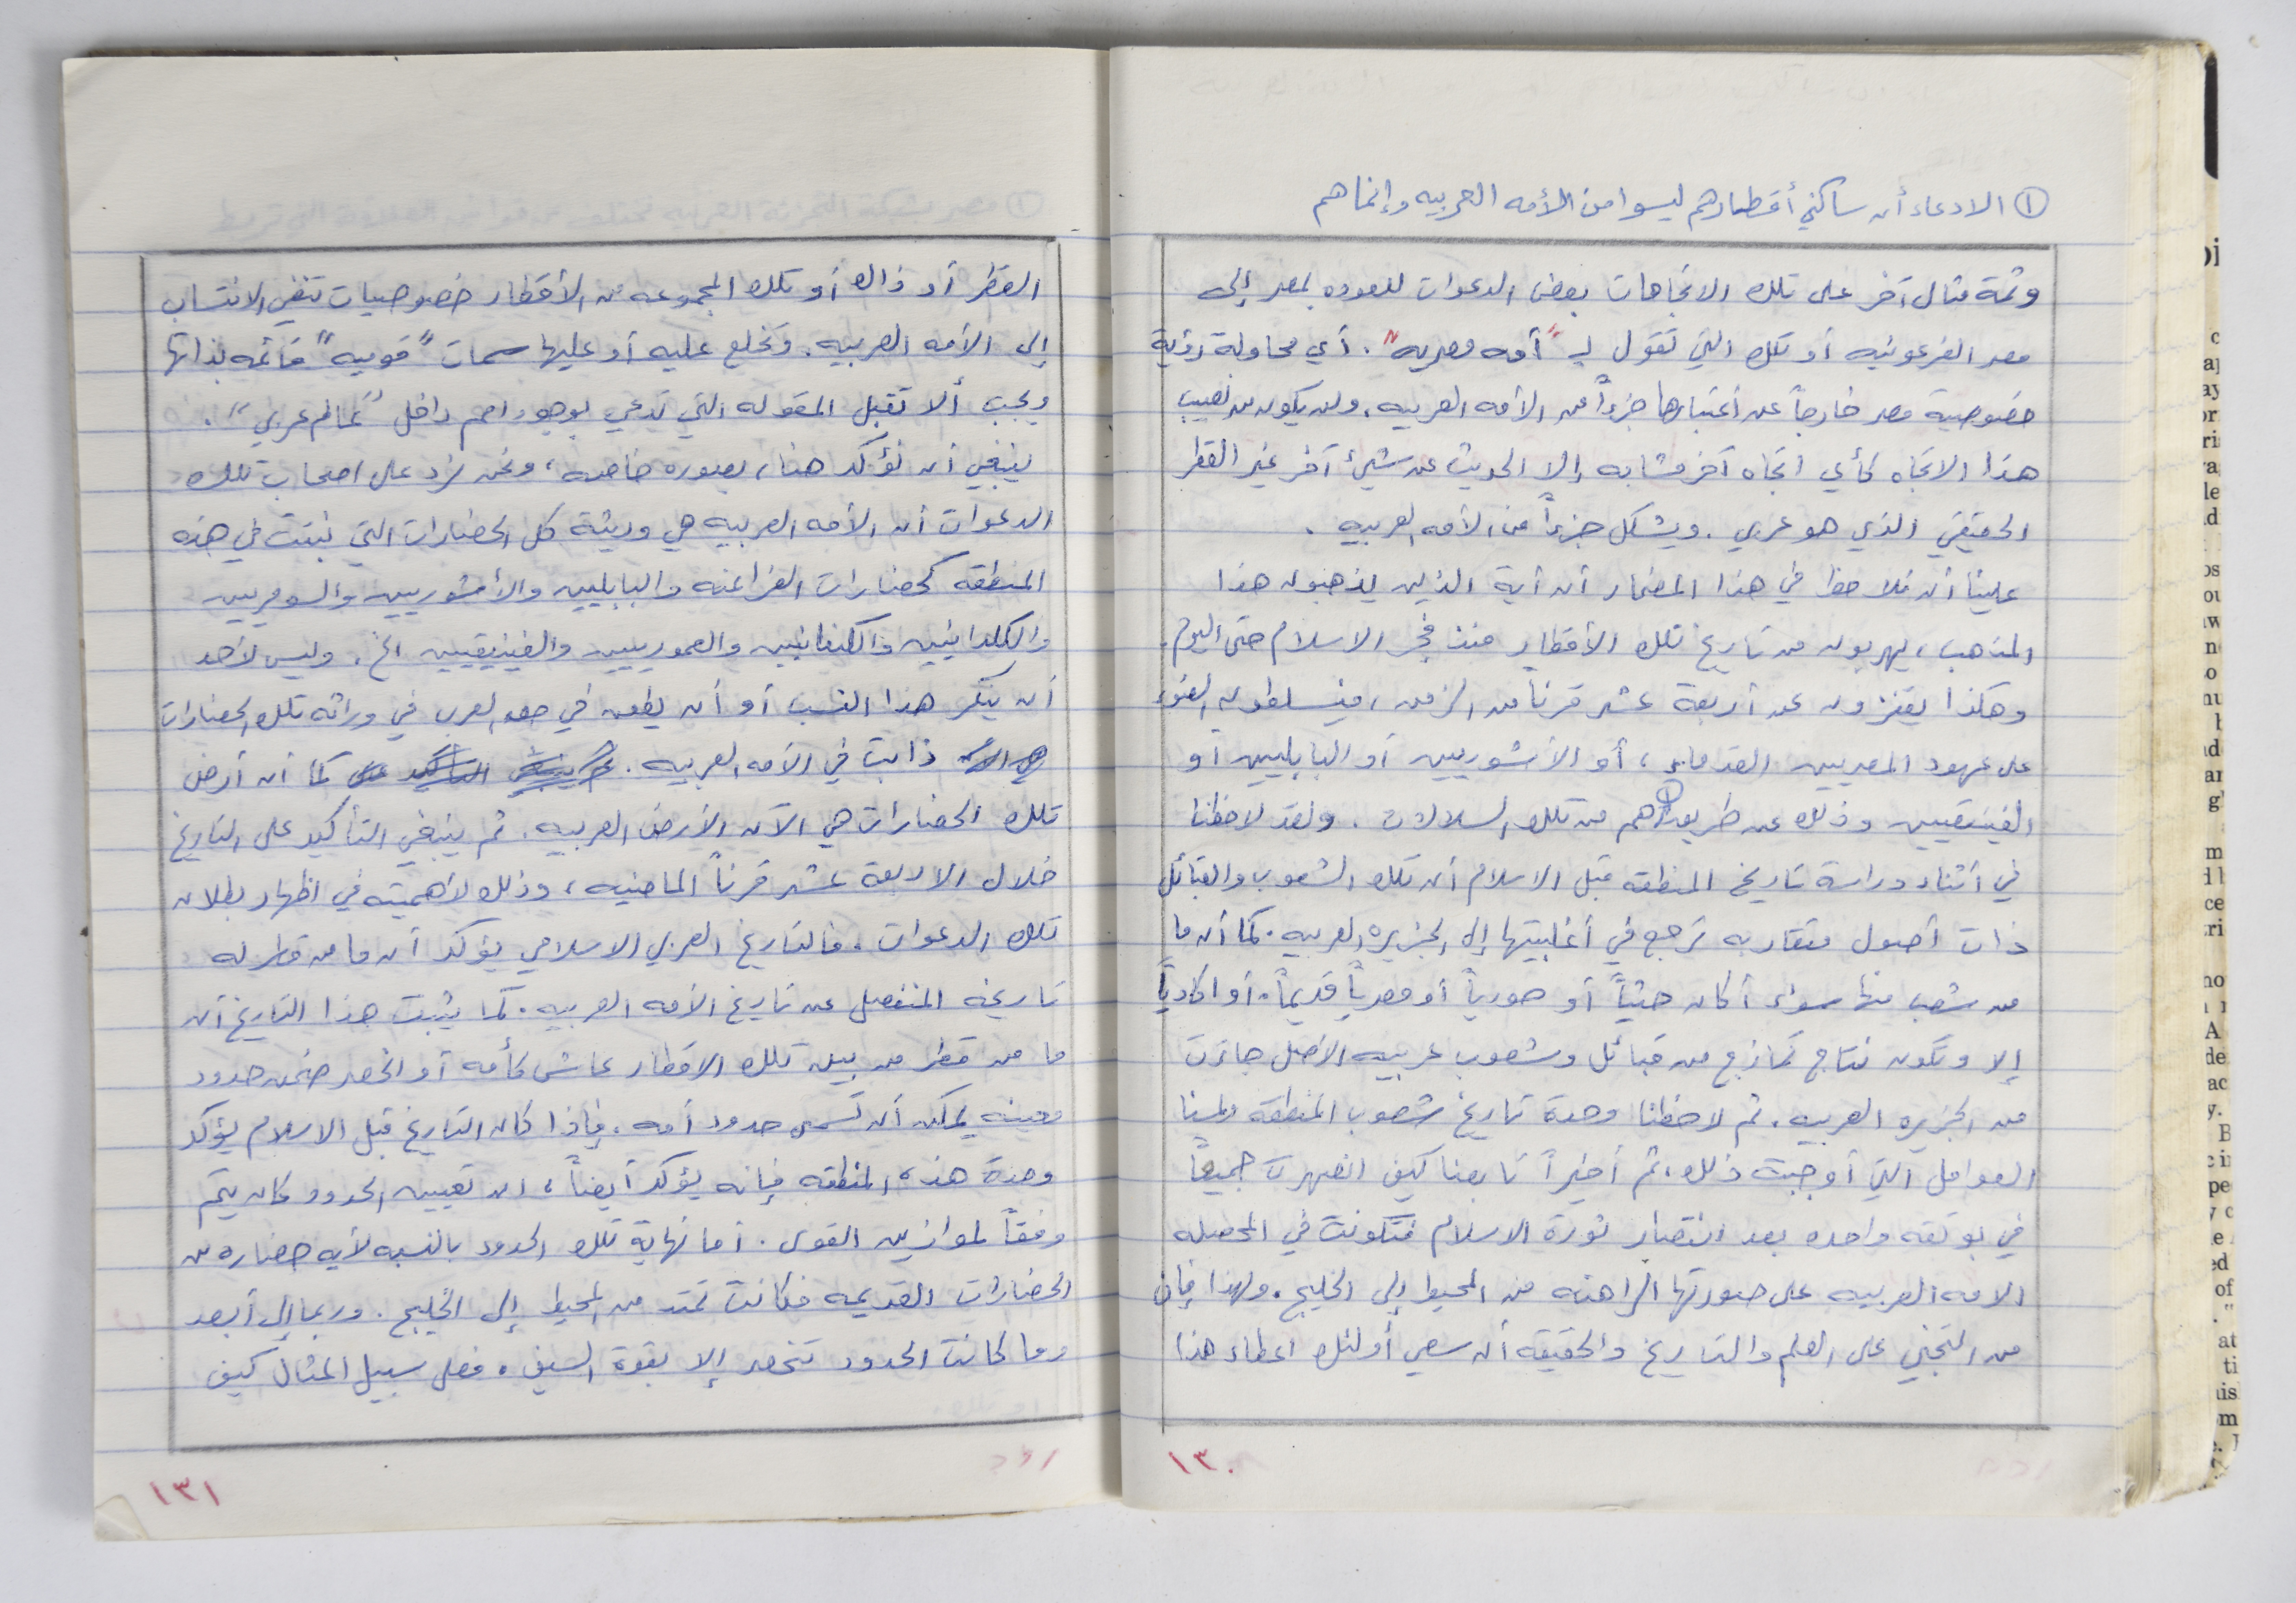 ① الادعاء أن ساكني أقطارهم ليسوا من الأمه العربيه وإنما هم
وثمة مثال آخر على تلك الاتجاهات بعض الدعوات للعوده بمصر إلى
مصر الفرعونيه أو تلك التي تقول لـ "أمه مصريه". أي محاولة رؤية
خصوصية مصر خارجاً عن اعتبارها جزءاً من الأمه العربيه. ولن يكون من نصيب
هذا الاتجاه كأي اتجاه آخر مشابه إلا الحديث عن شيئ آخر غير القطر
الحقيقي الذي هو عربي. ويشكل جزءاً من الأمه العربيه.
علينا أن نلاحظ في هذا المضمار أن أية الذين يذهبون هذا
المذهب، يهربون من تاريخ تلك الأقطار منذ فجر الاسلام حتى اليوم.
وهكذا يقفزون عن أربعة عشر قرناً من الزمن، فيسلطون الضوء
على عهود المصريين القدماء، أو الأشوريين أو البابليين أو
الفينيقيين وذلك عن طريق ① هم من تلك السلالات. ولقد لاحظنا
في أثناء دراسة تاريخ المنطقه قبل الاسلام أن تلك الشعوب والقبائل
ذات أصول متقاربه ترجع في أغلبيتها إلى الجزيره العربيه. كما أن ما
من شعب منها سواء أكان حثياً أو حورياً أو مصرياً قديماً. أو اكادياً
إلا وتكون نتاج تمازج من قبائل وشعوب عربيه الأصل جاءت
من الجزيره العربيه. ثم لاحظنا وحدة تاريخ شعوب المنطقه ولمسنا
العوامل التي أوجبت ذلك. ثم أخيراً تابعنا كيف انصهرت جميعاً
في بوتقه واحده بعد انتصار ثورة الاسلام فتكونت في المحصله
الامه العربيه على صورتها الراهنه من المحيط إلى الخليج. ولهذا فإن
من التجني على العلم والتاريخ والحقيقه أن سعي أولئك اعطاء هذا
١٣٠
القطر أو ذاك أو تلك المجموعه من الأقطار خصوصيات تنفي الانتساب
إلى الأمه العربيه. وتخلع عليه أو عليها سمات "قوميه" قائمه بذاتها
ويجب ألا تقبل المقوله التي تدعي بوجود امم داخل "عالم عربي".
ينبغي أن نؤكد هنا، بصوره خاصه، ونحن نرد على اصحاب تلك
الدعوات أن الأمه العربيه هي وريثة كل الحضارات التي نبتت في هذه
المنطقه كحضارات الفراعنه والبابليين والأشوريين والسومريين
والكلدانيين والكنعانيين والعموريين والفينيقيين الخ. وليس لأحد
أن ينكر هذا النسب أو أن يطعن في حق العرب في وراثه تلك الحضارات
ذابت في الأمه العربيه. كما أن أرض
تلك الحضارات هي الآن الأرض العربيه. ثم ينبغي التأكيد على التاريخ
خلال الاربعة عشر قرناً الماضيه، وذلك لأهميته في اظهار بطلان
تلك الدعوات. فالتاريخ العربي الاسلامي يؤكد أن ما من قطر له
تاريخه المنفصل عن تاريخ الأمه العربيه. كما يثبت هذا التاريخ أن
ما من قطر من بين تلك الاقطار عاش كأمه أو انحصر ضمن حدود
معينه يمكن أن تسمى حدود أمه. فإذا كان التاريخ قبل الاسلام يؤكد
وحدة هذه المنطقه فإنه يؤكد أيضاً، ان تعيين الحدود كان يتم
وفقاً لموازين القوى. أما نهاية تلك الحدود بالنسبه لأيه حضاره من
الحضارات القديمه فكانت تمتد من المحيط إلى الخليج. وربما إلى أبعد
وما كانت الحدود تنحصر إلا بقوة السيف. فعلى سبيل المثال كيف
١٣١